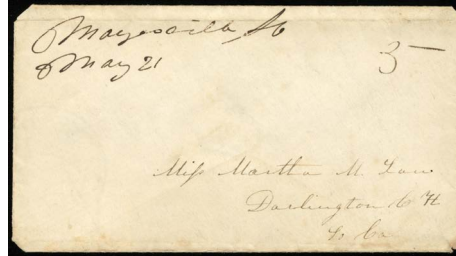 Mayesville So
May 21
5
Miss Martha M. Law
Darlington C H
So Ca